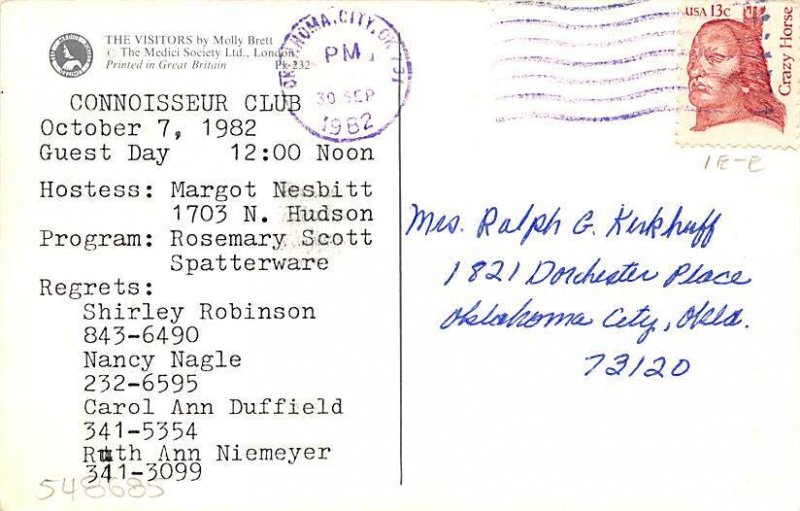 THE VISITORS by Molly Brett
© The Medici Society Ltd., London
Printed in Great Britain Pk-232
OKLAHOMA, CITY, OK 731
PM
30 SEP
1982
USA 13c
Crazy Horse
1E-E
CONNOISSEUR CLUB
October 7, 1982
Guest Day 12:00 Noon
Hostess: Margot Nesbitt
1703 N. Hudson
Program: Rosemary Scott
Spatterware
Regrets:
Shirley Robinson
843-6490
Nancy Nagle
232-6595
Carol Ann Duffield
341-5354
Ruth Ann Niemeyer
341-3099
548685
Mrs. Ralph G. Kirkhuff
1821 Dorchester Place
Oklahoma City, Okla.
73120